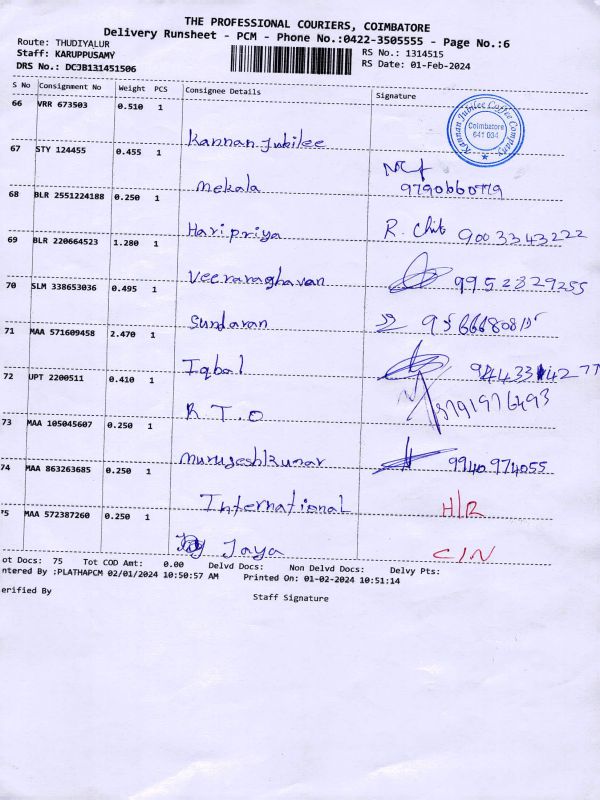 THE PROFESSIONAL COURIERS, COIMBATORE
Delivery Runsheet - PCM - Phone No.:0422-3505555 - Page No.:6
Route: THUDIYALUR
Staff: KARUPPUSAMY
RS No.: 1314515
DRS No.: DCJB131451506
RS Date: 01-Feb-2024
S No Consignment No Weight PCS Consignee Details Signature
66 VRR 673503 0.510 1
Kannan Jubilee
Kannan Jubilee Coffee Company
Coimbatore
641 034
67 STY 124455 0.455 1
Mekala 9790660779
68 BLR 2551224188 0.250 1
Haripriya R. 9003343222
69 BLR 220664523 1.280 1
Veeraraghavan 9952829255
70 SLM 338653036 0.495 1
Sundaran
71 MAA 571609458 2.470 1
Iqbal
72 UPT 2200511 0.410 1
R T O
73 MAA 105045607 0.250 1
Murugeshkumar 9940974055
74 MAA 863263685 0.250 1
International H/R
75 MAA 572387260 0.250 1
Jaya C/N
ot Docs: 75 Tot COD Amt: 0.00 Delvd Docs: Non Delvd Docs: Delvy Pts:
ntered By :PLATHAPCM 02/01/2024 10:50:57 AM Printed On: 01-02-2024 10:51:14
erified By
Staff Signature